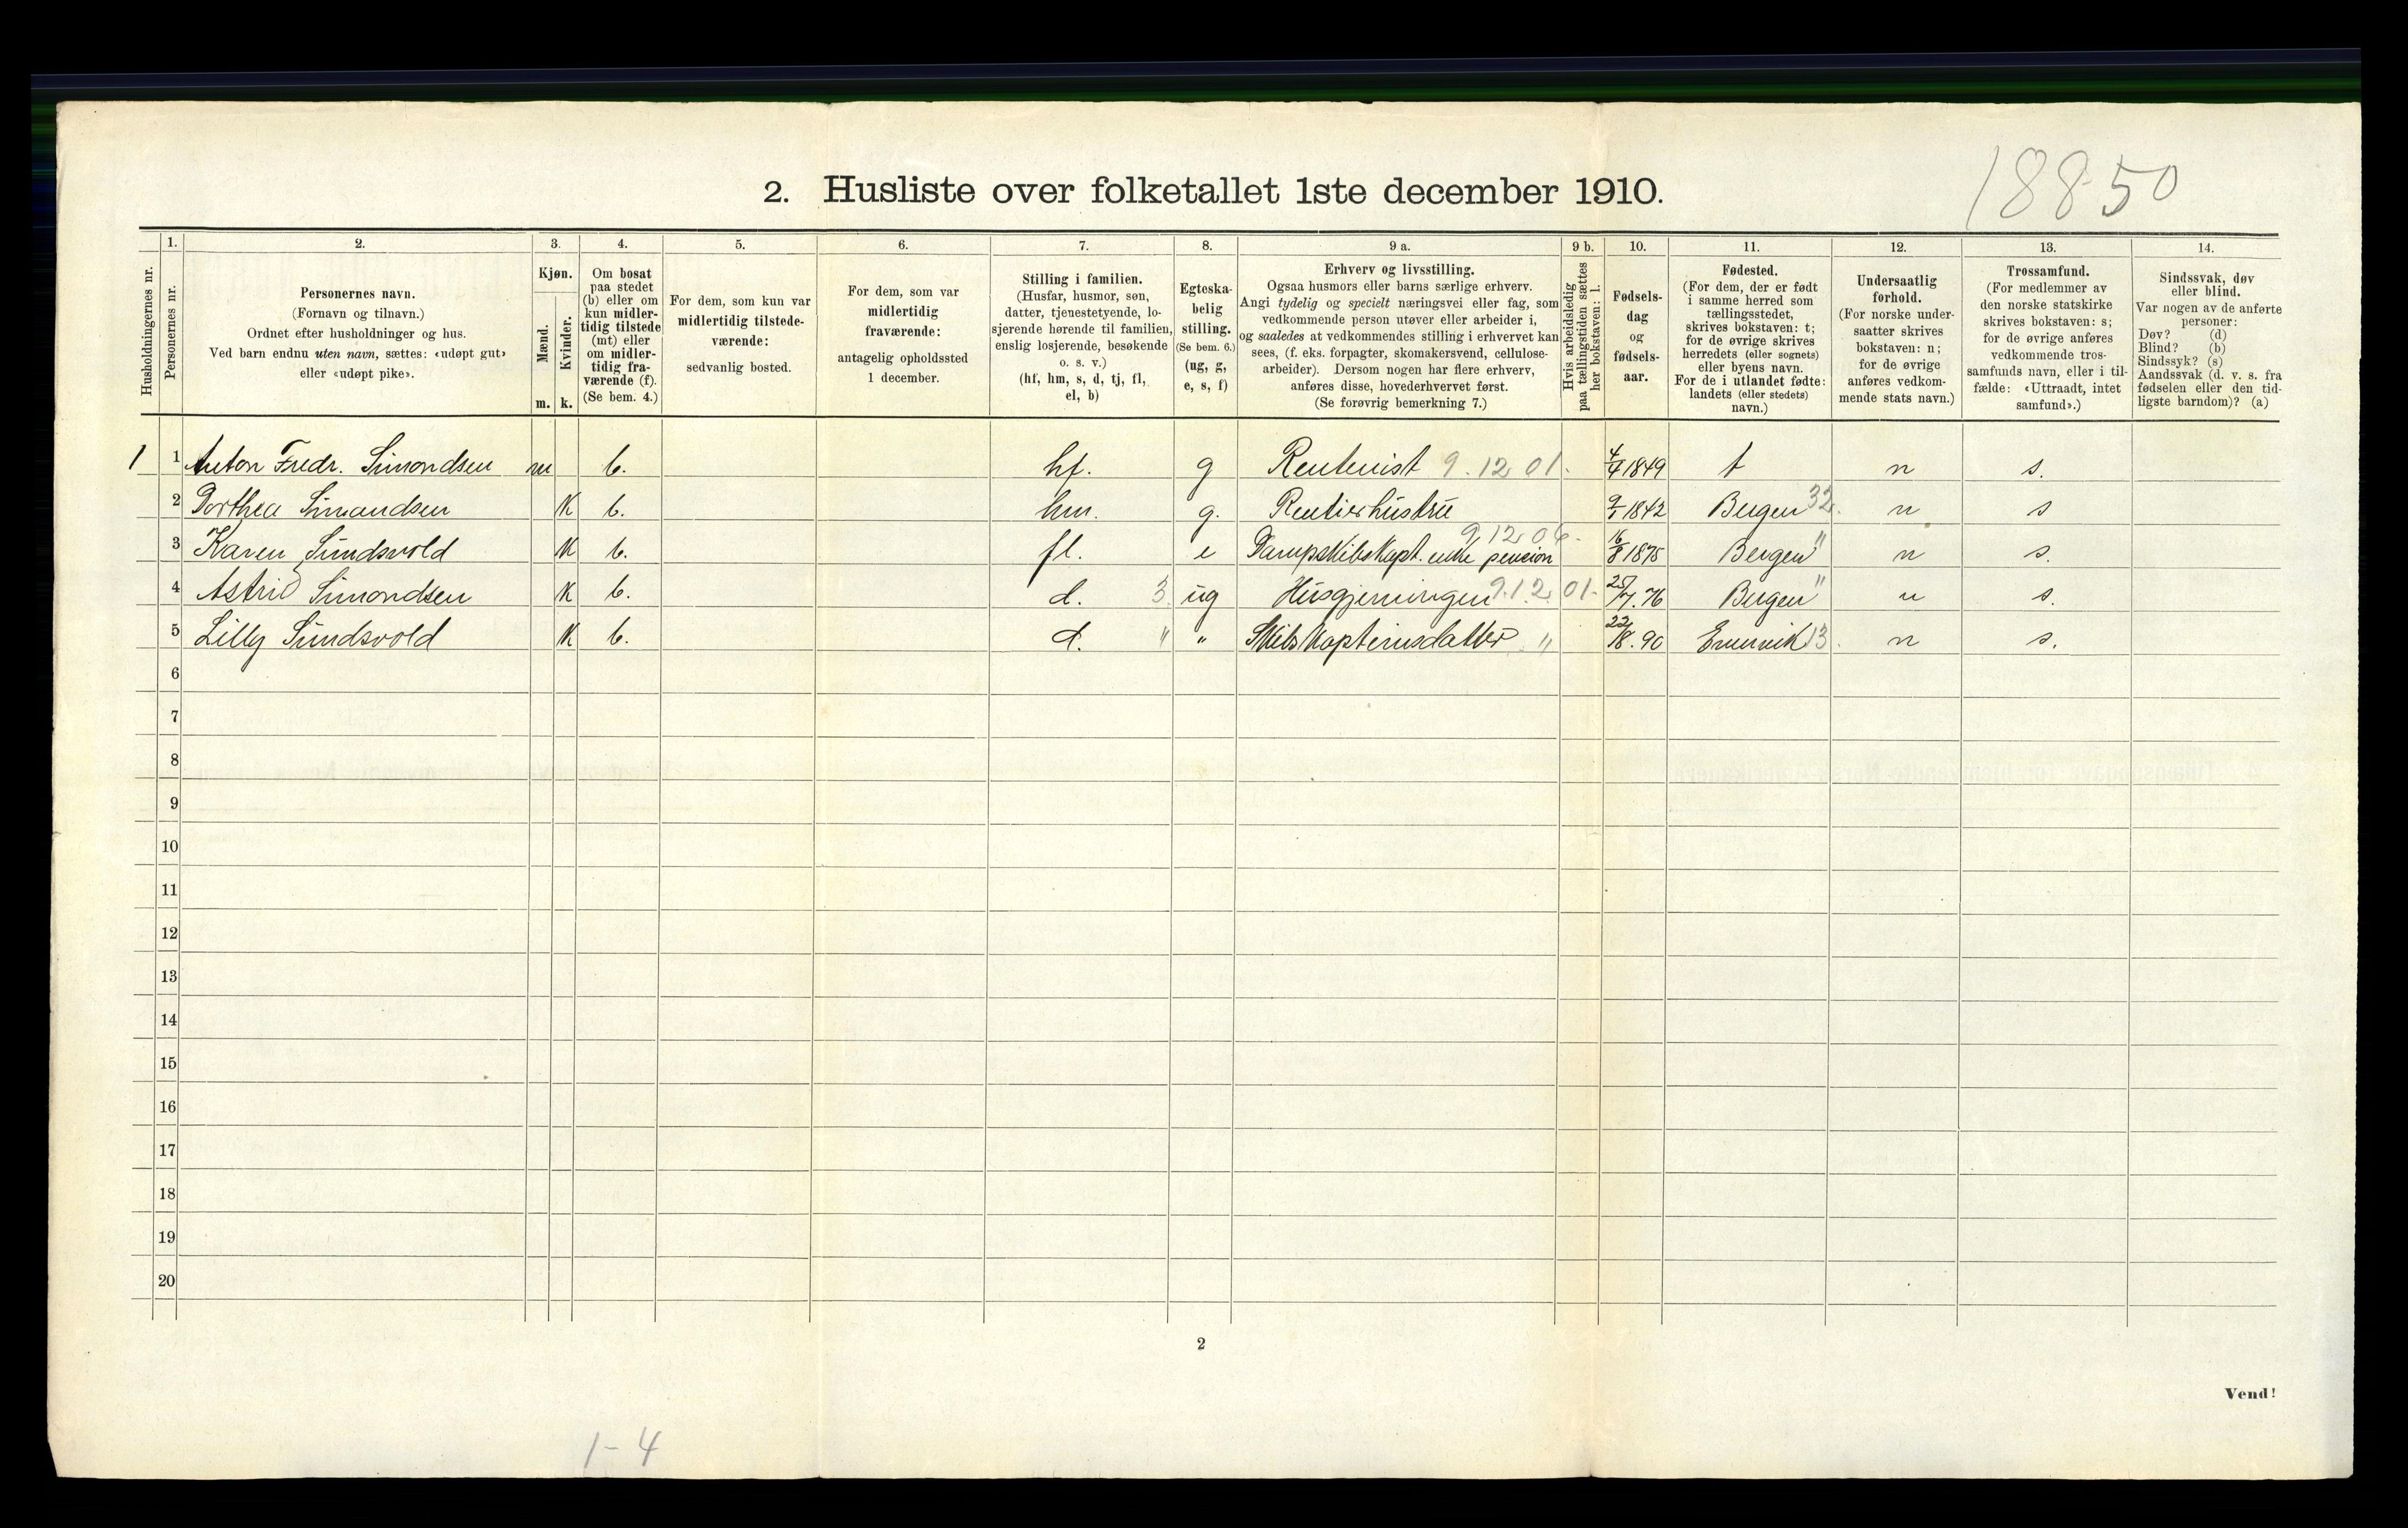 18850
2. Husliste over folketallet 1ste december 1910.
Husholdningernes nr.
1.
Personernes nr.
2.
Personernes navn.
(Fornavn og tilnavn.)
Ordnet efter husholdninger og hus.
Ved barn endnu uten navn, sættes: «udøpt gut»
eller «udøpt pike».
3.
Kjøn.
Mænd.
Kvinder.
m. k.
4.
Om bosat
paa stedet
(b) eller om
kun midler-
tidig tilstede
(mt) eller
om midler-
tidig fra-
værende (f).
(Se bem. 4.)
5.
For dem, som kun var
midlertidig tilstede-
værende:
sedvanlig bosted.
6.
For dem, som var
midlertidig
fraværende:
antagelig opholdssted
1 december.
7.
Stilling i familien.
(Husfar, husmor, søn,
datter, tjenestetyende, lo-
sjerende hørende til familien,
enslig losjerende, besøkende
o. s. v.)
(hf, hm, s, d, tj, fl,
el, b)
8.
Egteska-
belig
stilling.
(Se bem. 6.)
(ug, g,
e, s, f)
9 a.
Erhverv og livsstilling.
Ogsaa husmors eller barns særlige erhverv.
Angi tydelig og specielt næringsvei eller fag, som
vedkommende person utøver eller arbeider i,
og saaledes at vedkommendes stilling i erhvervet kan
sees, (f. eks. forpagter, skomakersvend, cellulose-
arbeider). Dersom nogen har flere erhverv,
anføres disse, hovederhvervet først.
(Se forøvrig bemerkning 7.)
9 b.
Hvis arbeidsledig
paa tællingstiden sættes
her bokstaven: l.
10.
Fødsels-
dag
og
fødsels-
aar.
11.
Fødested.
(For dem, der er født
i samme herred som
tællingsstedet,
skrives bokstaven: t;
for de øvrige skrives
herredets (eller sognets)
eller byens navn.
For de i utlandet fødte:
landets (eller stedets)
navn.)
12.
Undersaatlig
forhold.
(For norske under-
saatter skrives
bokstaven: n;
for de øvrige
anføres vedkom-
mende stats navn.)
13.
Trossamfund.
(For medlemmer av
den norske statskirke
skrives bokstaven: s;
for de øvrige anføres
vedkommende tros-
samfunds navn, eller i til-
fælde: «Uttraadt, intet
samfund».)
14.
Sindssvak, døv
eller blind.
Var nogen av de anførte
personer:
Døv? (d)
Blind? (b)
Sindssyk? (s)
Aandssvak (d. v. s. fra
fødselen eller den tid-
ligste barndom)? (a)
1 1 Anton Fredr. Simondsen m b. hf. g Rentenist 9.12 01. 4/4 1849 t n s.
2 Dorthea Simondsen K b. hm. g. Rentierhustru 1842 Bergen 32. n s
3 Karen Sundsvold K b. fl. e Dampskibskapt. enke pension 9,12 06. 16/8 1875 Bergen " n s.
4 Astrid Simondsen K b. d. 3. ug Husgjerningen 9.12. 01. 25/7.76 Bergen " n s.
5 Lilly Sundsvold K b. d. " " Skibskapteinsdatter " 22/8.90 Evenvik 13. n s.
6
7
8
9
10
11
12
13
14
15
16
17
18
19
20
2
Vend!
1-4